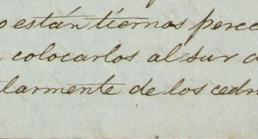 o están tiernos perec
colocarlos al sur d
larmente de los cedr